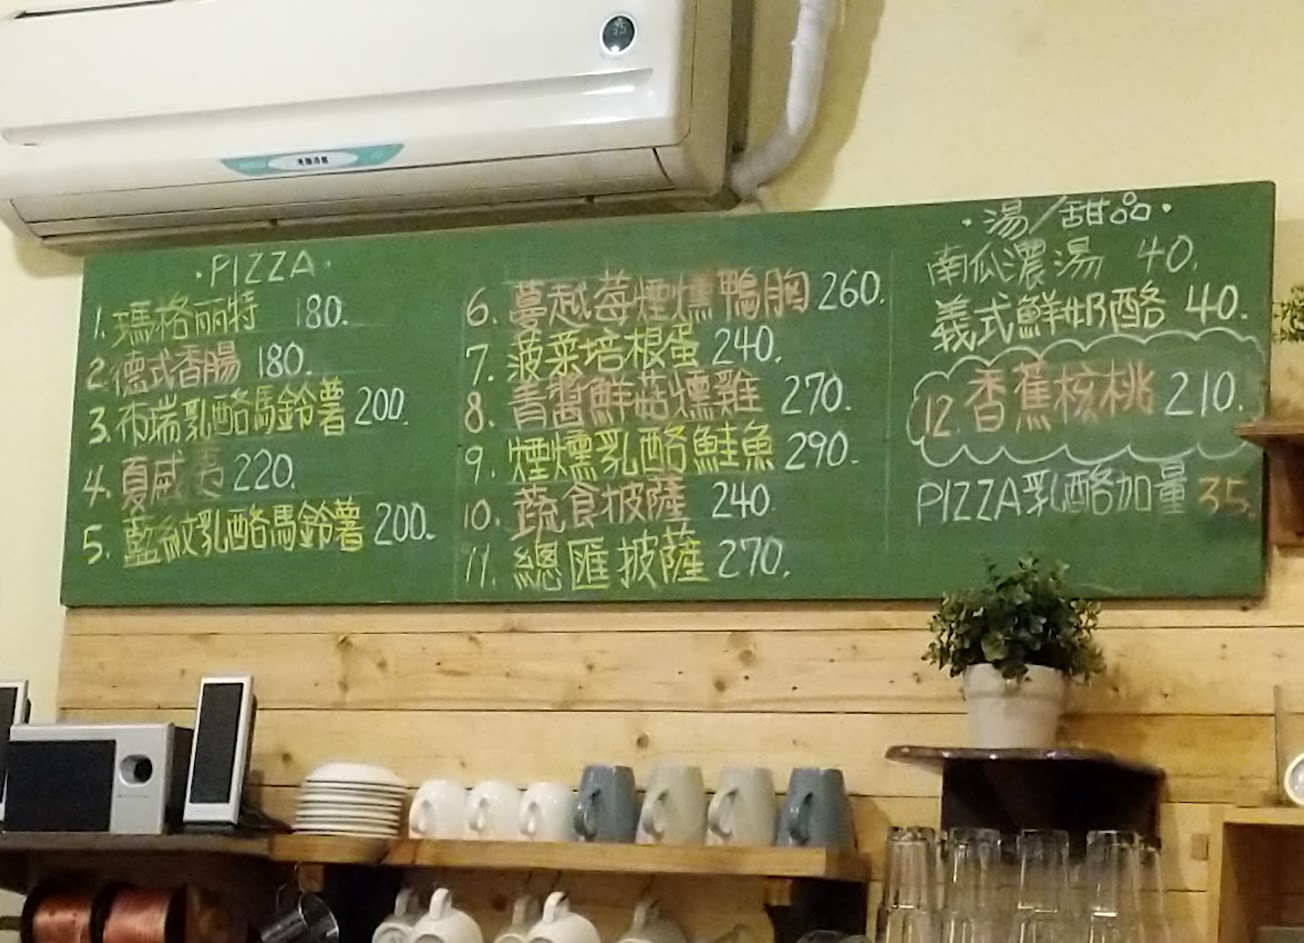 ·PIZZA·
1.瑪格丽特 180.
2.德式香腸 180.
3.布瑞乳酪馬鈴薯 200.
4.夏威夷 220.
5.藍紋乳酪馬鈴薯 200.
6.蔓越莓煙燻鴨胸 260.
7.菠菜培根蛋 240.
8.青醬鮮菇燻雞 270.
9.煙燻乳酪鮭魚 290.
10.蔬食披薩 240
11.總匯披薩 270.
·湯/甜品·
南瓜濃湯 40.
義式鮮奶酪 40.
12.香蕉核桃 210.
PIZZA乳酪加量 35.